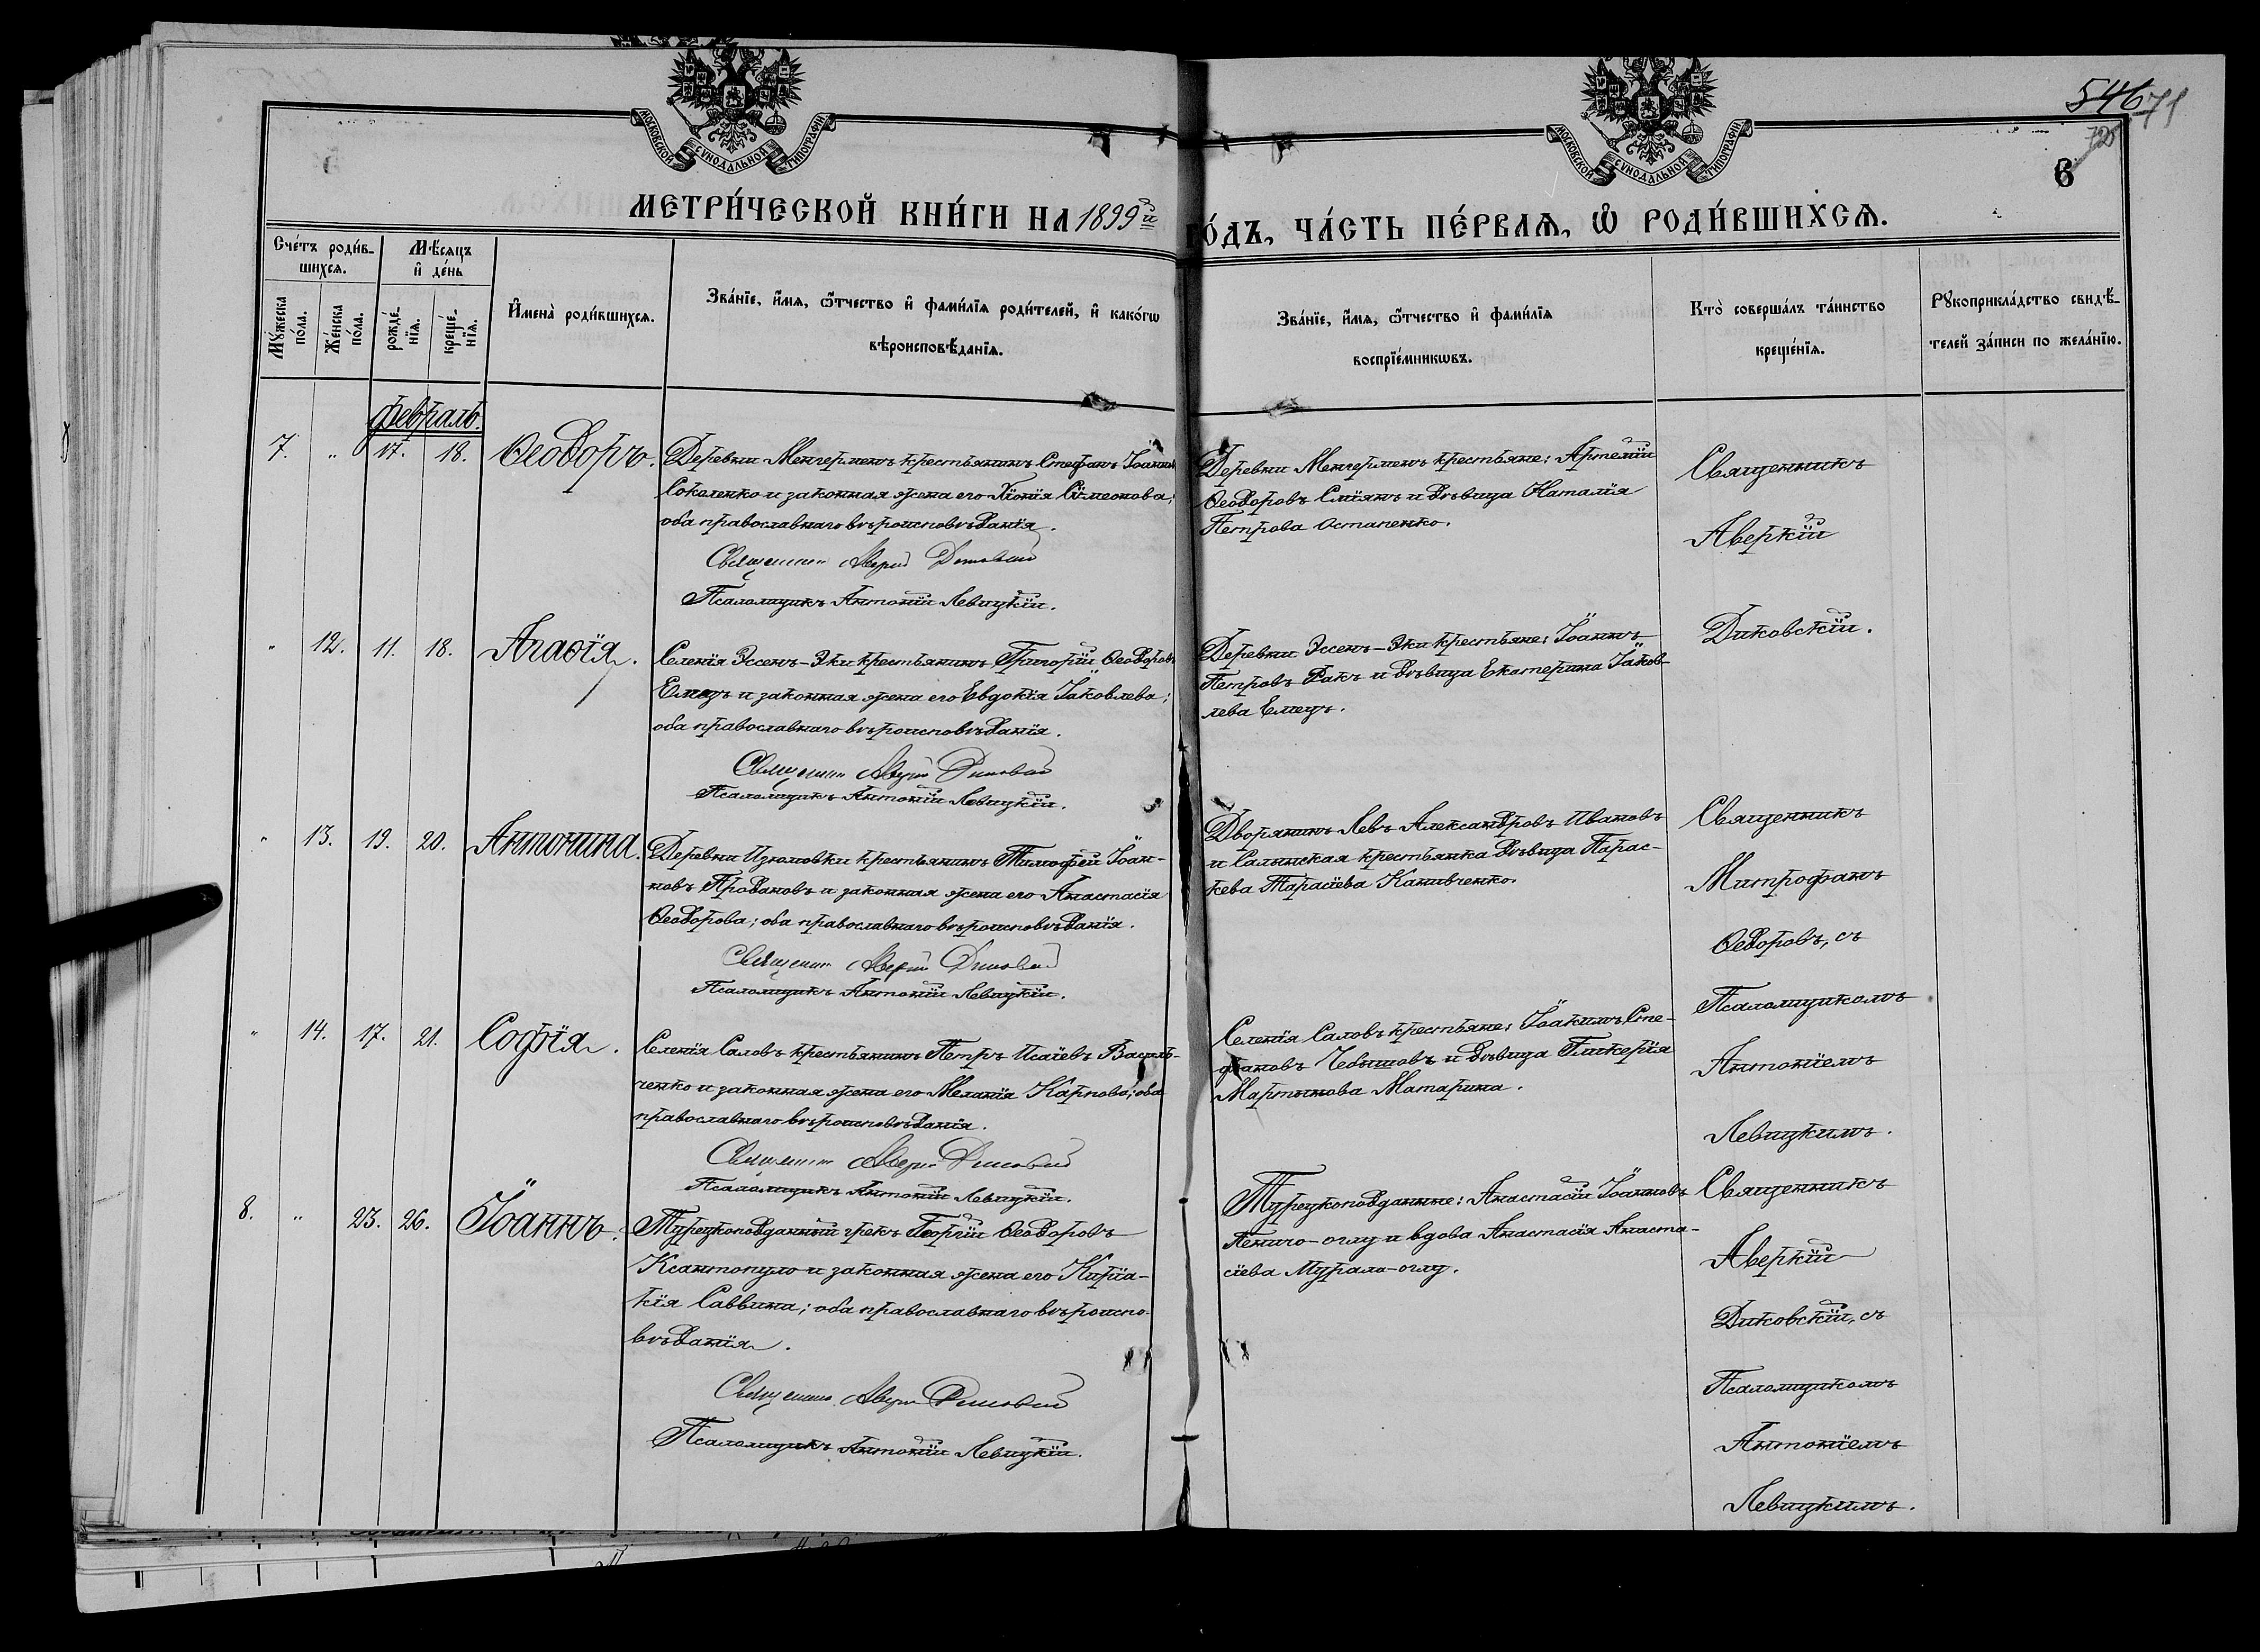 МОСКОВСКОЙ СѴНОДАЛЬНОЙ ТИПОГРАФІИ
МОСКОВСКОЙ СѴНОДАЛЬНОЙ ТИПОГРАФІИ
546
71
728
6
МЕТРИ́ЧЕСКОЙ КНИ́ГИ НА 1899й
ГО́ДЪ, ЧА́СТЬ ПЕ́РВАѦ, Ѡ҆ РОДИ́ВШИХСѦ.
Сче́тъ роди́в-
шихсѧ.
Мѣ́сѧцъ
и҆ де́нь
Мꙋ́жеска
по́ла.
Же́нска
по́ла.
рожде́-
нїѧ.
креще́-
нїѧ.
И҆мена̀ роди́вшихсѧ.
Зва́нїе, и҆́мѧ, ѻ҆́тчество и҆ фами́лїѧ роди́телей, и҆ како́гѡ
вѣроисповѣ́данїѧ.
Зва́нїе, и҆́мѧ, ѻ҆́тчество и҆ фами́лїѧ
воспрїе́мникѡвъ.
Кто̀ соверша́лъ та́инство
креще́нїѧ.
Рꙋкоприкла́дство свидѣ́-
телей за́писи по жела́нїю.
февраль.
7. " 17. 18. Ѳеодоръ.
Деревни Менгерменъ крестьянинъ Стефанъ Іоанновъ
Соколенко и законная жена его Хіонія Симеонова;
оба православнаго вѣроисповѣданія.
Священникъ Аверкій Диковскій
Псаломщикъ Антоній Левицкій.
Деревни Менгерменъ крестьяне: Артемій
Ѳеодоровъ Сміянъ и дѣвица Наталія
Петрова Остапенко.
Священникъ
Аверкій
Диковскій.
" 12. 11. 18. Агаѳія.
Селенія Эссенъ-Эки крестьянинъ Григорій Ѳеодоровъ
Емецъ и законная жена его Евдокія Іаковлева;
оба православнаго вѣроисповѣданія.
Священникъ Аверкій Диковскій
Псаломщикъ Антоній Левицкій.
Деревни Эссенъ-Эки крестьяне: Іоаннъ
Петровъ Ракъ и дѣвица Екатерина Іаков-
лева Емецъ.
" 13. 19. 20. Антонина.
Деревни Изюмовки крестьянинъ Тимофей Іоан-
новъ Продановъ и законная жена его Анастасія
Ѳеодорова; оба православнаго вѣроисповѣданія.
Священникъ Аверкій Диковскій
Псаломщикъ Антоній Левицкій.
Дворянинъ Левъ Александровъ Ивановъ
и Салынская крестьянка дѣвица Парас-
кева Тарасіева Канивченко.
Священникъ
Митрофанъ
Ѳедоровъ, съ
Псаломщикомъ
Антоніемъ
Левицкимъ.
" 14. 17. 21. Софія.
Селенія Саловъ крестьянинъ Петръ Исаіевъ Василь-
ченко и законная жена его Меланія Карпова; оба
православнаго вѣроисповѣданія.
Священникъ Аверкій Диковскій
Псаломщикъ Антоній Левицкій.
Селенія Саловъ крестьяне: Іоакимъ Сте-
фановъ Чебышовъ и дѣвица Гликерія
Мартынова Матарина.
8. " 23. 26. Іоаннъ.
Турецкоподданный грекъ Георгій Ѳеодоровъ
Ксантопуло и законная жена его Киріа-
кія Саввина; оба православнаго вѣроиспо-
вѣданія.
Священникъ Аверкій Диковскій
Псаломщикъ Антоній Левицкій.
Турецкоподданные: Анастасій Іоанновъ
оглу и вдова Анастасія Анаста-
сіева Мурала-оглу.
Священникъ
Аверкій
Диковскій, съ
Псаломщикомъ
Антоніемъ
Левицкимъ.